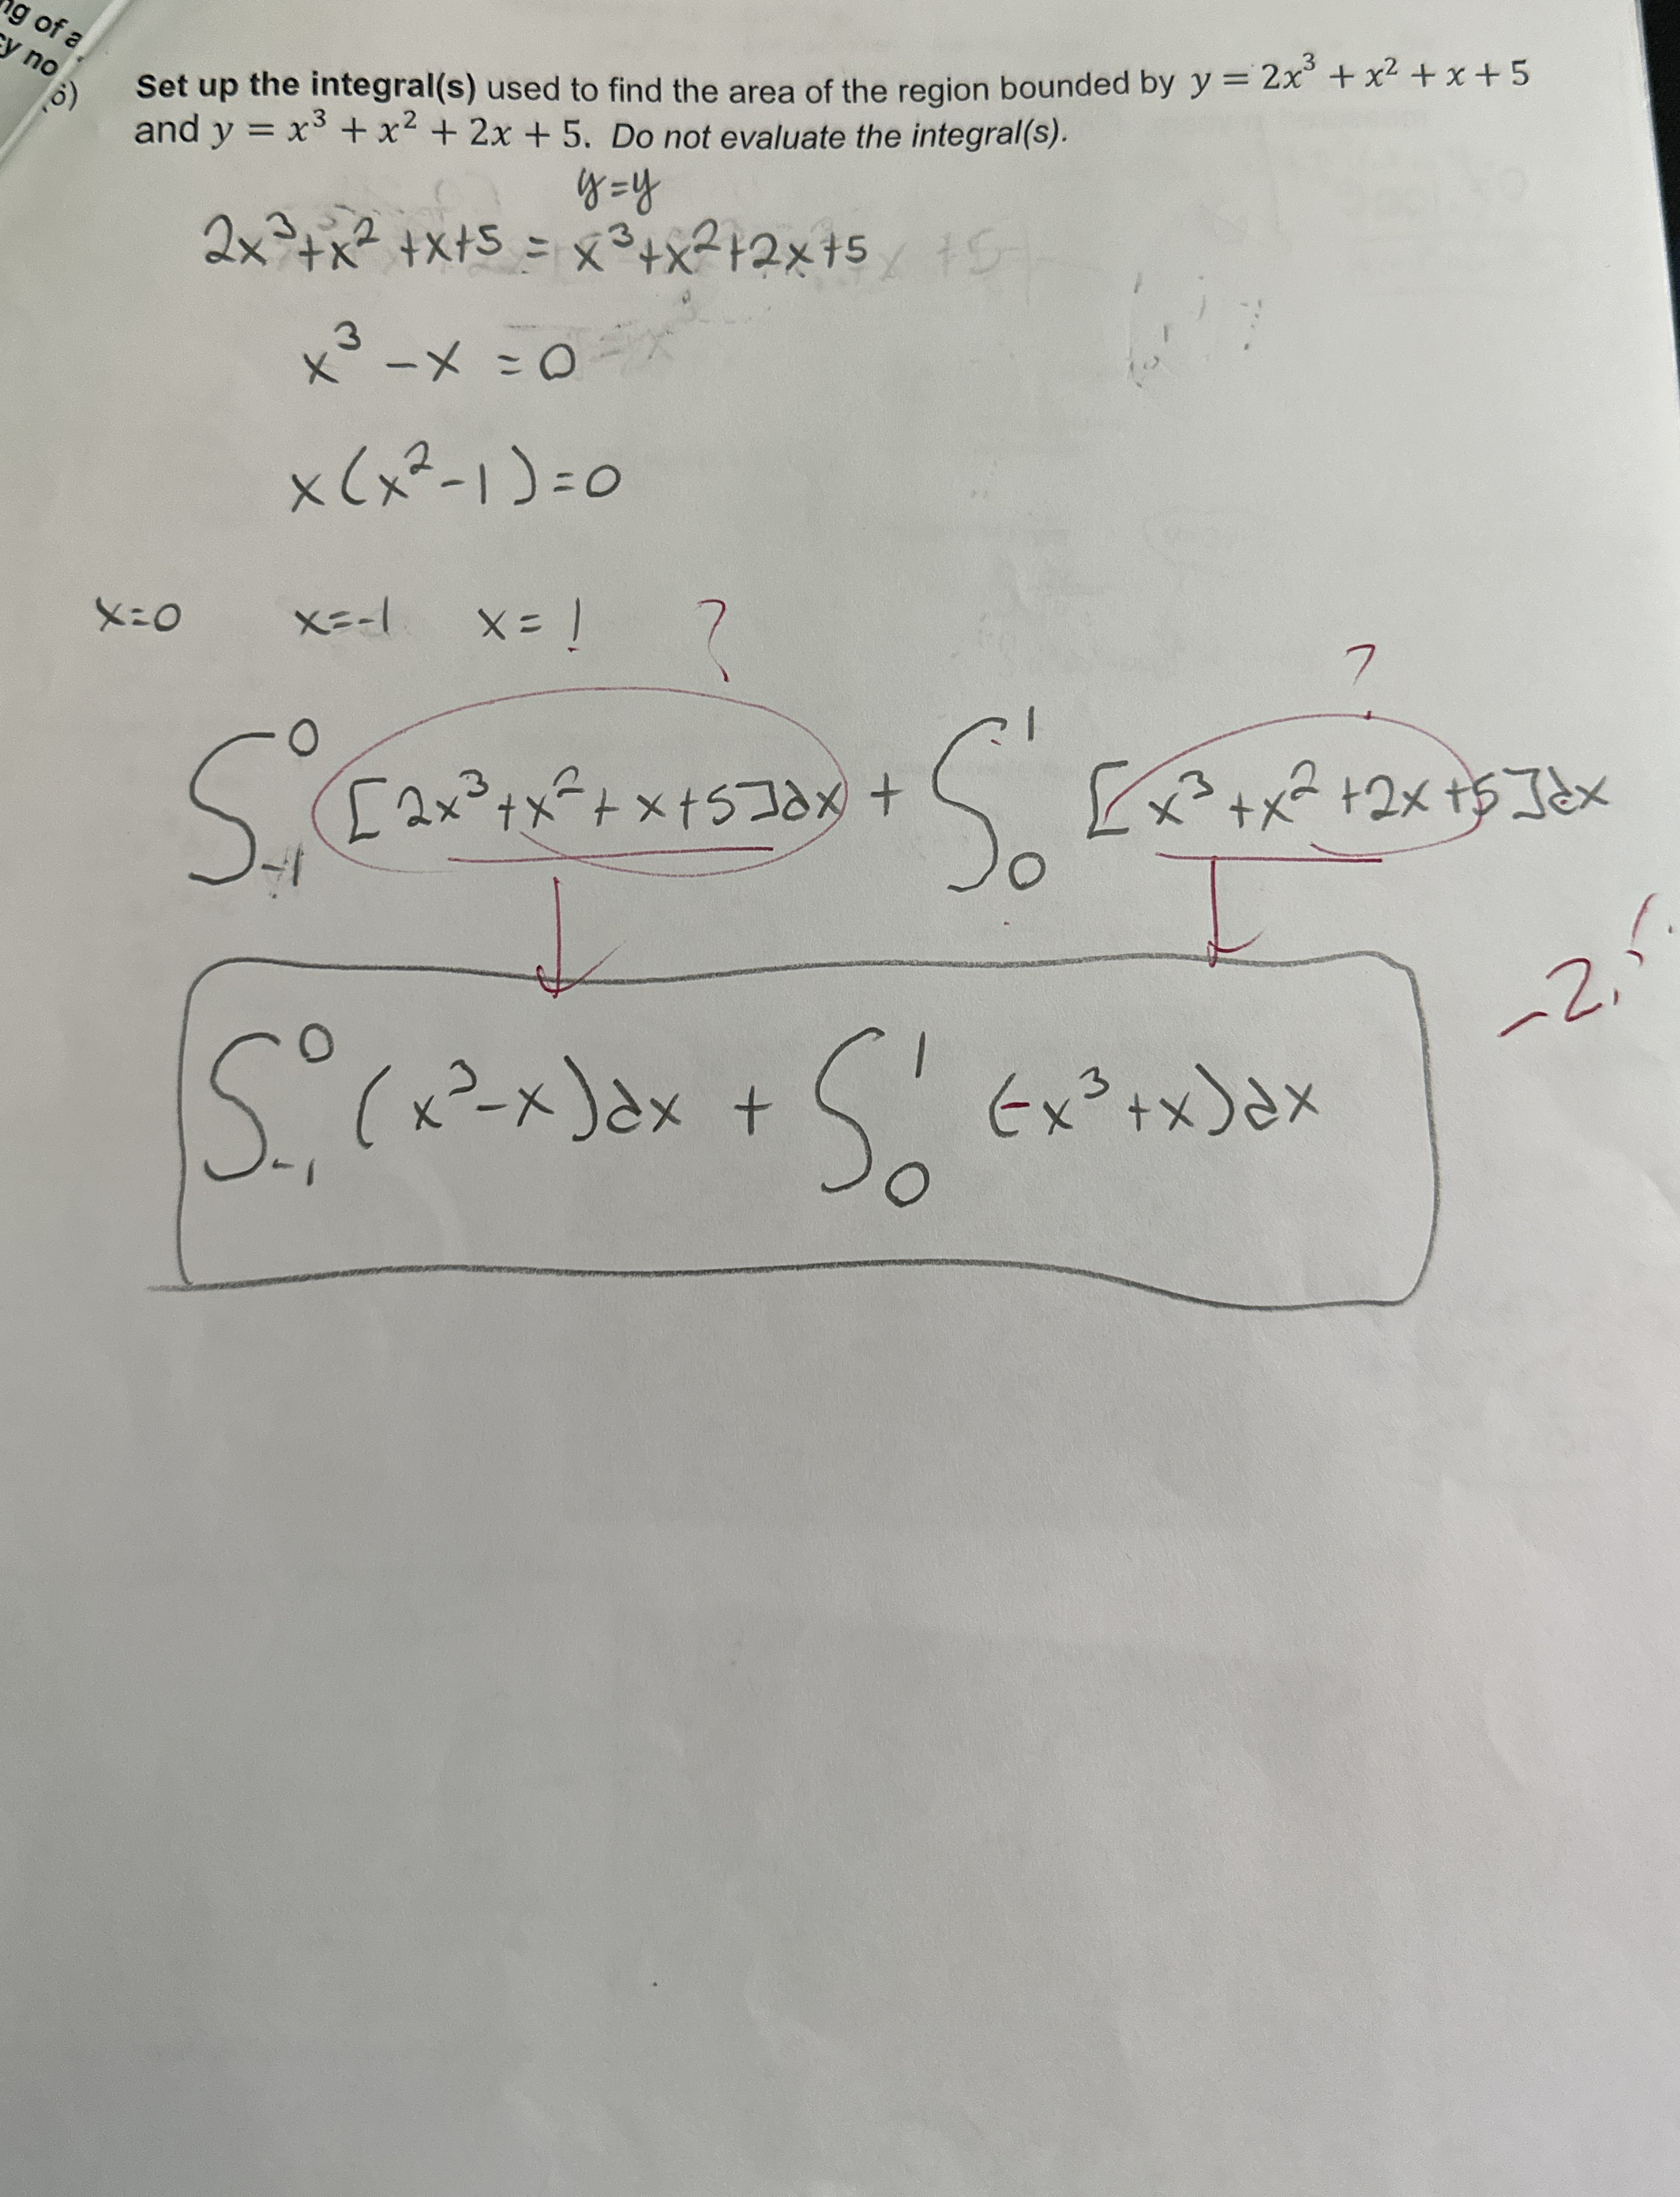 ng of a
cy no
6)
Set up the integral(s) used to find the area of the region bounded by y = 2x³ + x² + x + 5
and y = x³ + x² + 2x + 5. Do not evaluate the integral(s).
y=y
2x³+x²+x+5 = x³+x²+2x+5
x³ - x = 0
x(x²-1)=0
x=0 x=-1 x=1 ?
?
∫₋₁⁰ [2x³+x²+x+5]dx + ∫₀¹ [x³+x²+2x+5]dx
∫₋₁⁰ (x³-x)dx + ∫₀¹ (-x³+x)dx